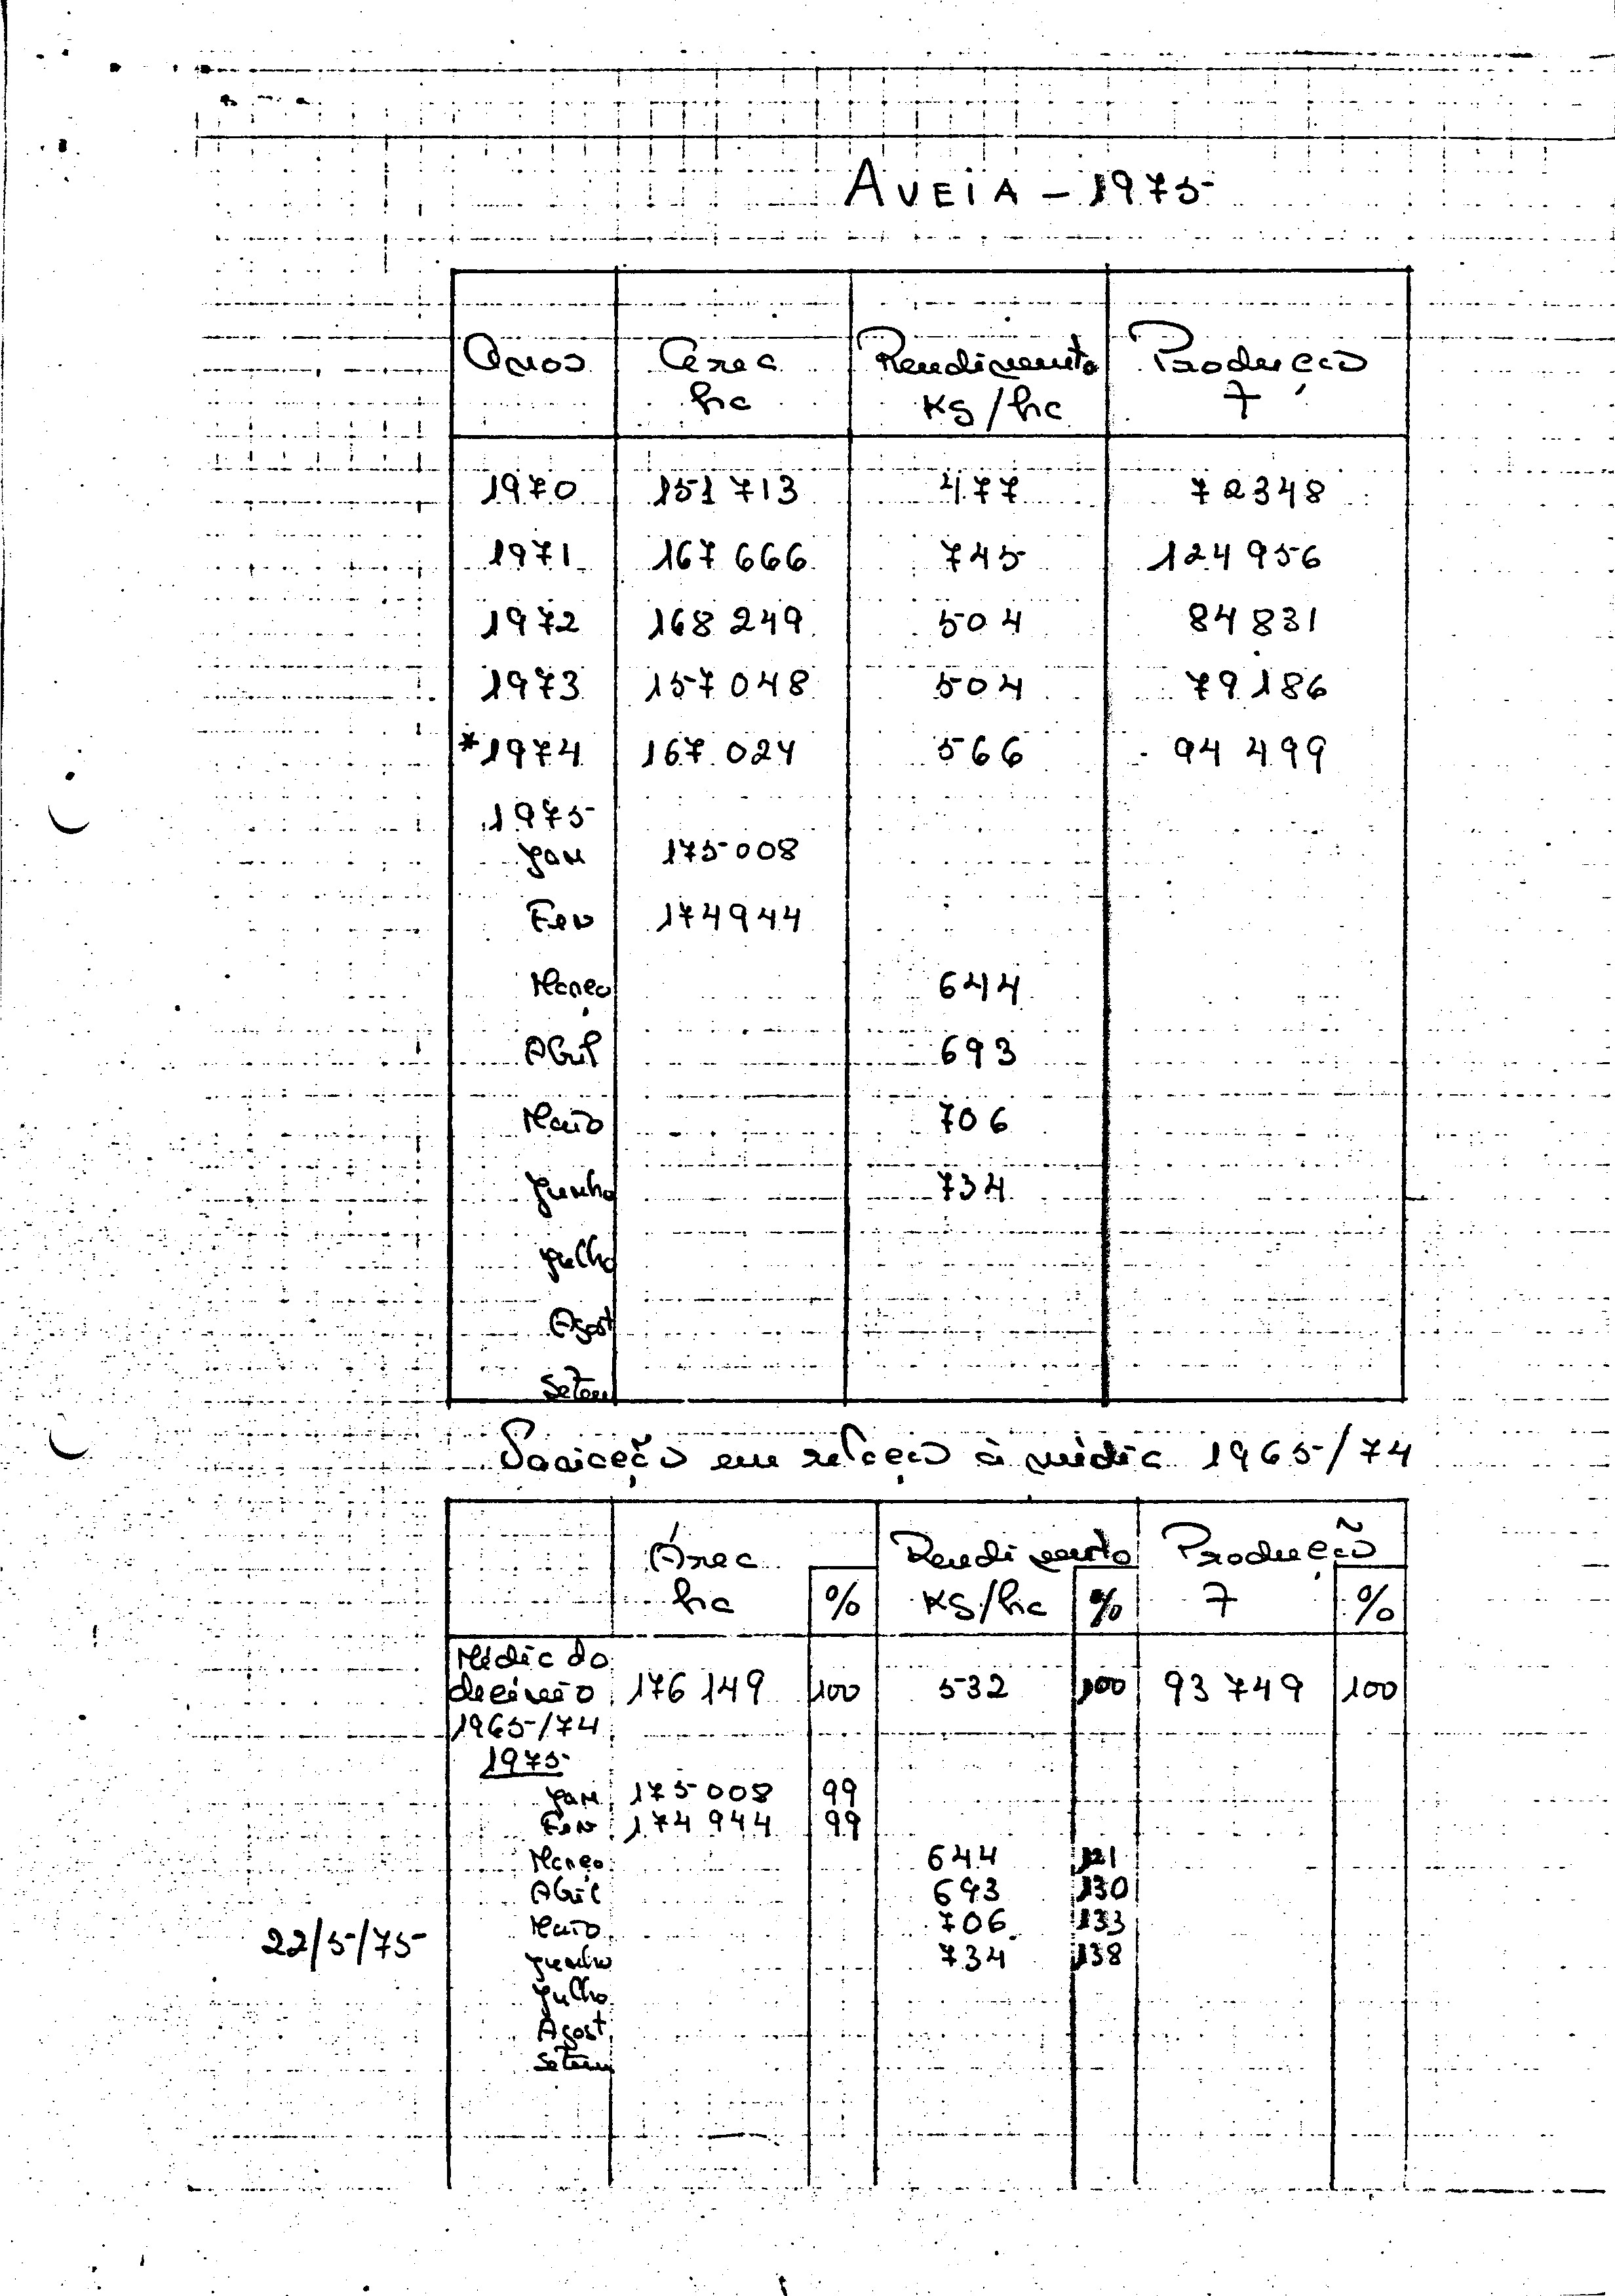 AVEIA - 1975
Anos Área Rendimento Produção
ha Kg/ha T
1970 151 713 477 72348
1971 167 666 745 124 956
1972 168 249 504 84 831
1973 157 048 504 79 186
*1974 167 024 566 94 499
1975
Jan 175 008
Fev 174944
Março 644
Abril 693
Maio 706
Junho 734
Julho
Agost
Setem
Variação em relação à média 1965/74
Área Rendimento Produção
ha % Kg/ha % T %
Média do
decénio 176 149 100 532 100 93 749 100
1965/74
1975
Jan 175 008 99
Fev 174 944 99
Março 644 121
Abril 693 130
Maio 706 133
22/5/75
Junho 734 138
Julho
Agost
Setem